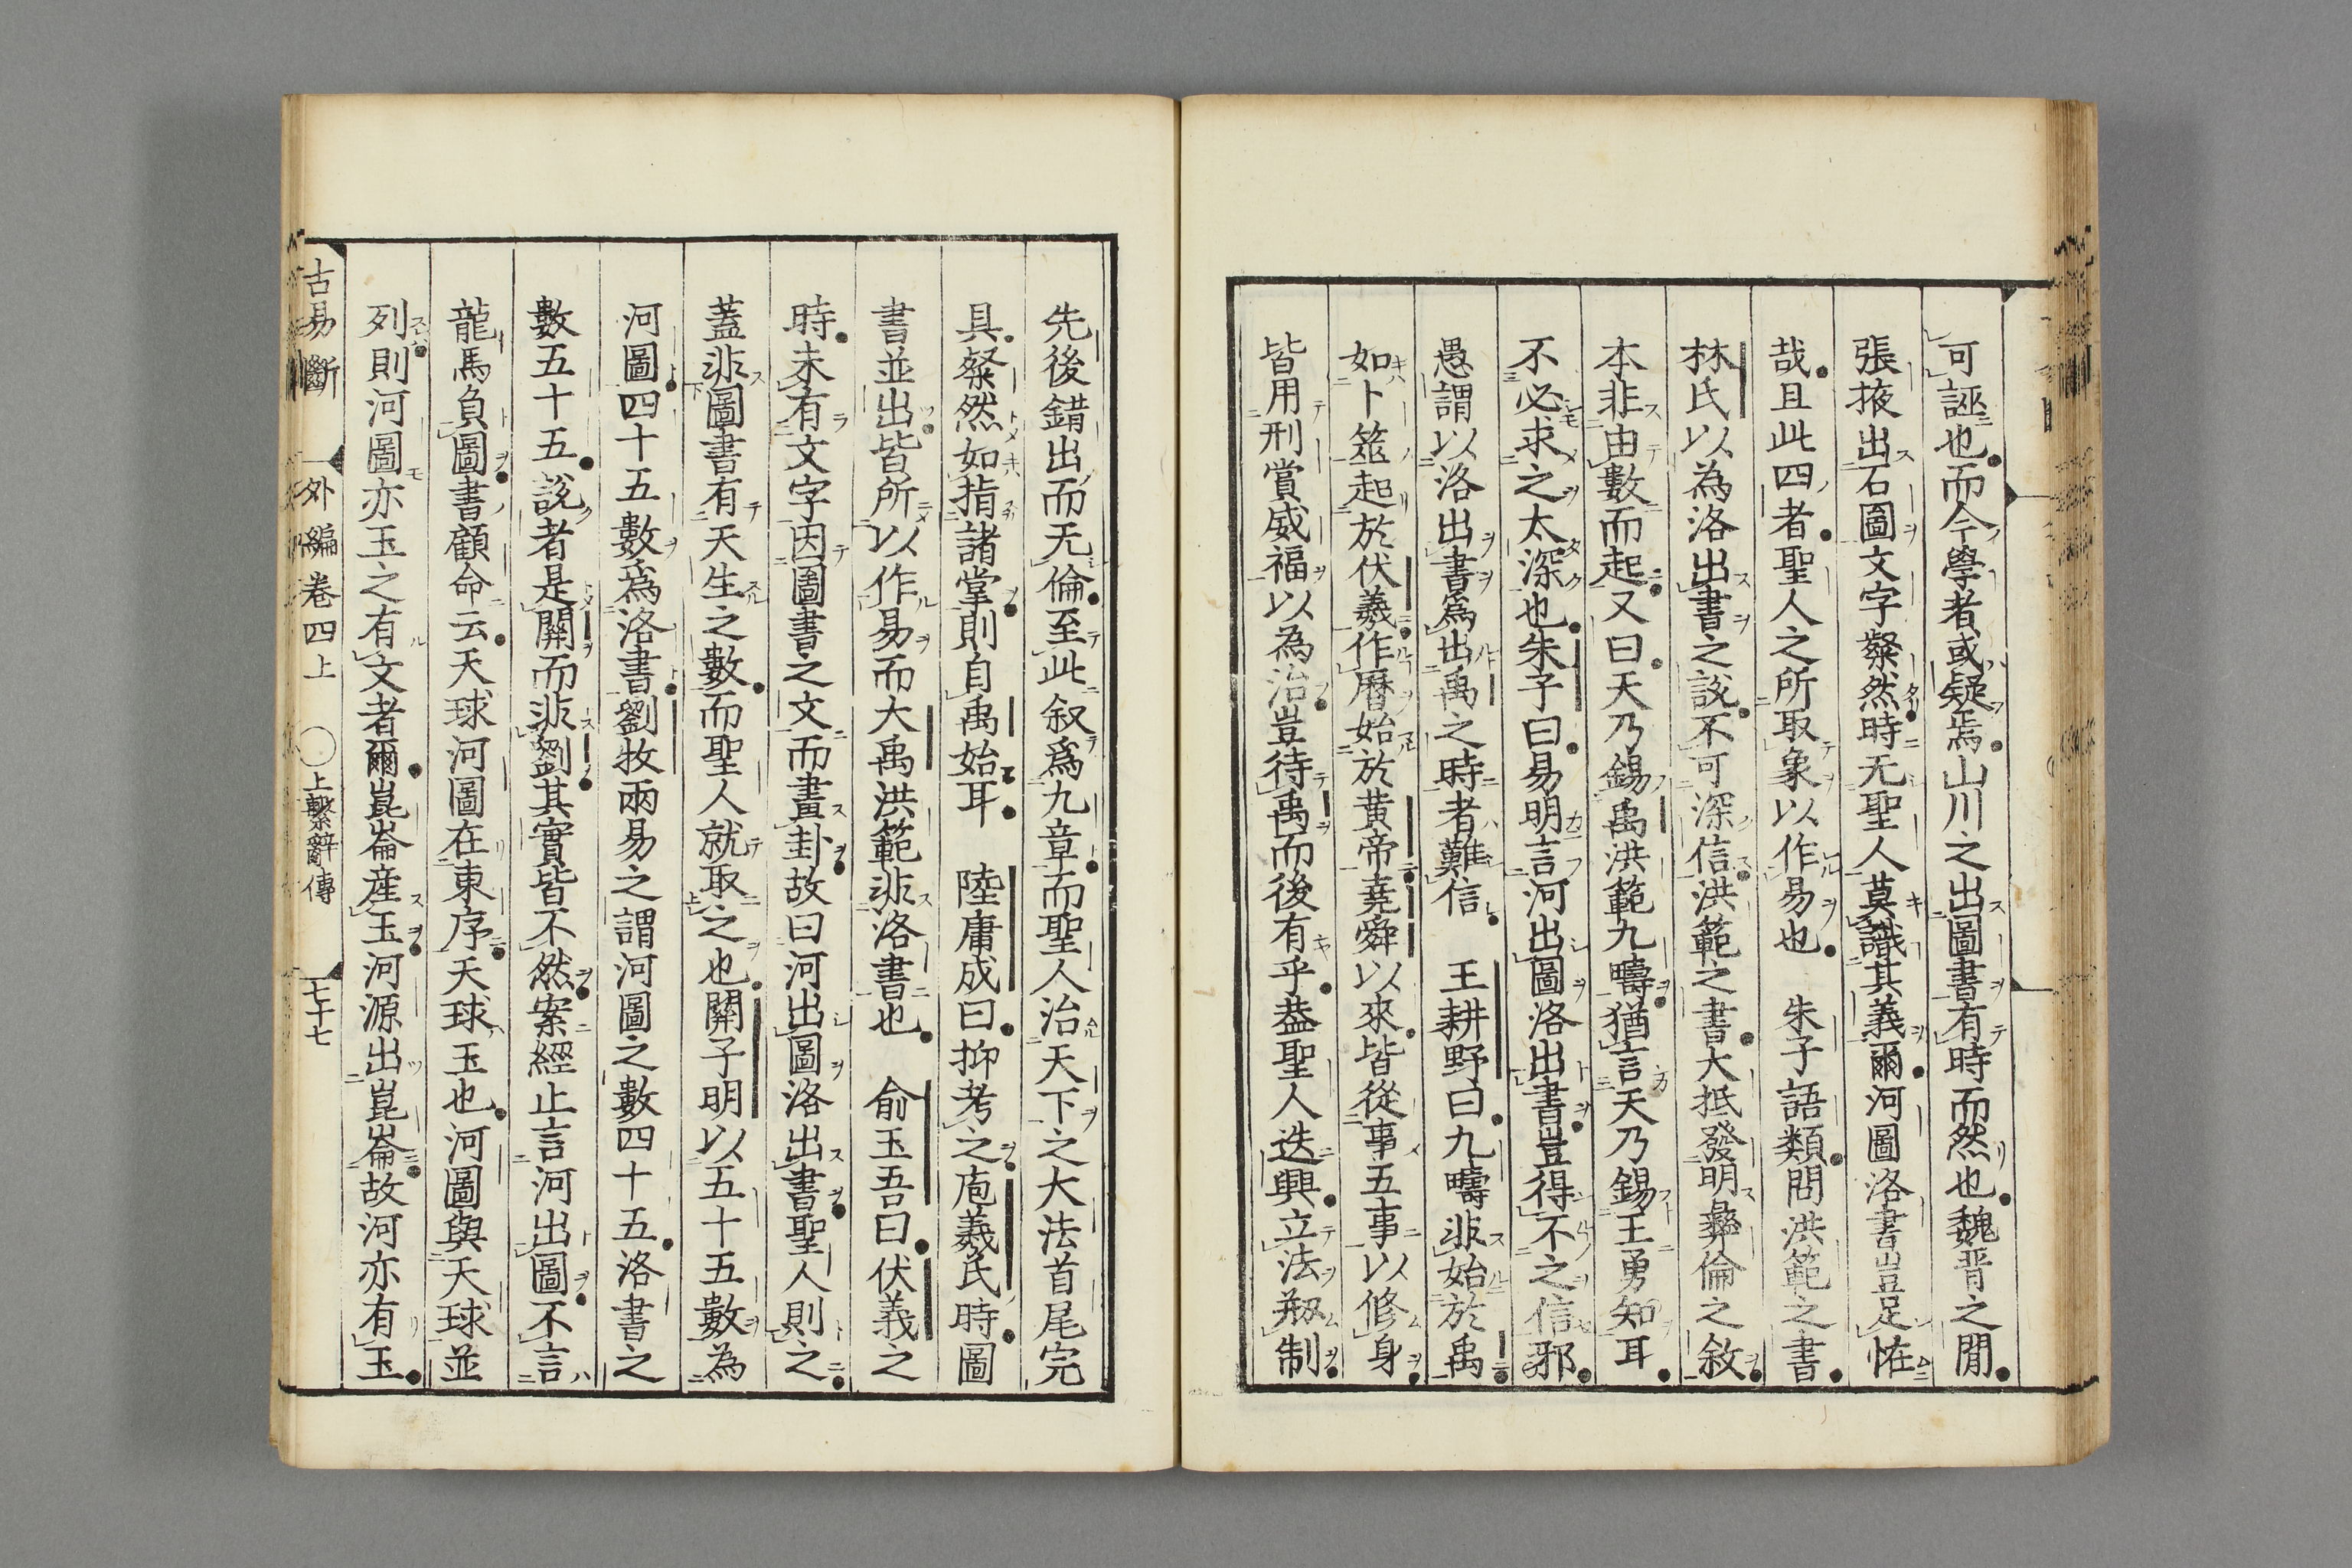 可誣也而今學者或疑焉山川之出圖書有時而然也魏晋之閒
張掖出石圖文字粲然時无聖人莫識其義爾河圖洛書豈足恠
哉且此四者聖人之所取象以作易也　朱子語類問洪範之書
林氏以為洛出書之說不可深信洪範之書大抵發明彜倫之敘
本非由數而起又曰天乃錫禹洪範九疇猶言天乃錫王勇知耳
不必求之太深也朱子曰易明言河出圖洛出書豈得不之信邪
愚謂以洛出書爲出禹之時者難信　王耕野曰九疇非始於禹
如卜筮起於伏羲作曆始於黄帝堯舜以來皆從事五事以修身
皆用刑賞威福以為治豈待禹而後有乎葢聖人迭興立法剏制
先後錯出而无倫至此叙爲九章而聖人治天下之大法首尾完
具粲然如指諸掌則自禹始耳　陸庸成曰抑考之庖羲氏時圖
書並出皆所以作易而大禹洪範非洛書也　俞玉吾曰伏義之
時未有文字因圖書之文而畫卦故曰河出圖洛出書聖人則之
蓋非圖書有天生之數而聖人就取之也關子明以五十五數為
河圖四十五數爲洛書劉牧兩易之謂河圖之數四十五洛書之
數五十五說者是關而非劉其實皆不然案經止言河出圖不言
龍馬負圖書顧命云天球河圖在東序天球玉也河圖與天球並
列則河圖亦玉之有文者爾崑崙産玉河源出崑崙故河亦有玉
古易斷　外編卷四上　〇上繫辭傳　七十七